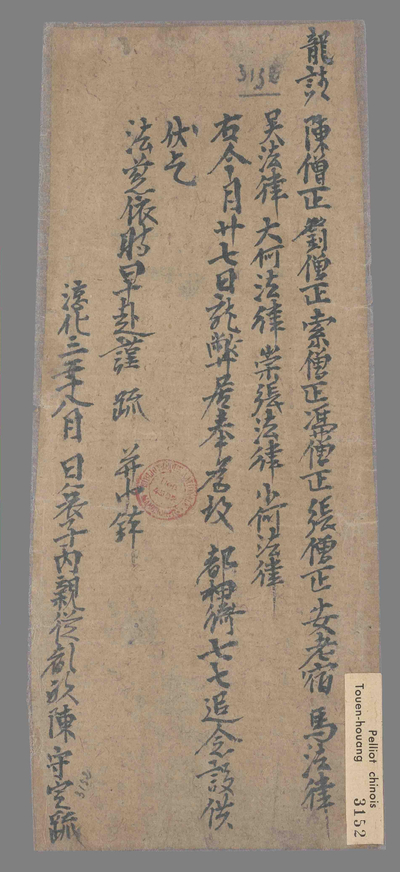 陳僧正 劉僧正 索僧正 馮僧正 張僧正 安老宿 馬法律
吳法律 大何法律 崇張法律 小何法律
右今月廿七日就弊居奉為故 都押衙七七追念設供
伏乞
法慈依時早赴謹 疏 并巾鉢
淳化三年八月 日哀子內親從都頭陳守定疏
3152
3152
Pelliot chinois
Touen-houang
3152